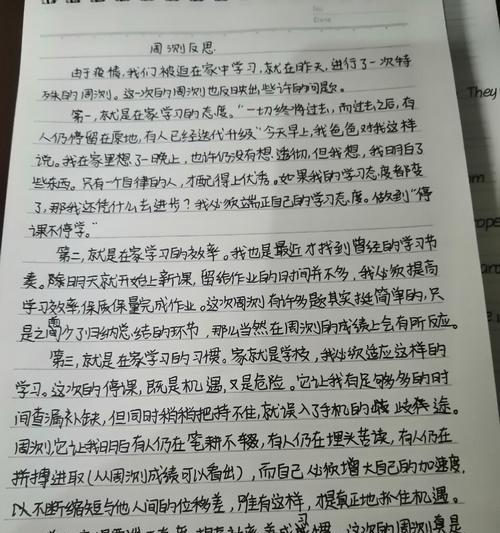 No
Date
周测反思
由于疫情,我们被迫在家中学习,就在昨天,进行了一次特
殊的周测。这一次的周测也反映出些许的问题。
第一,就是在家学习的态度。"一切终将过去,而过去之后,有
人仍停留在原地,有人已经迭代升级"今天早上,我爸爸对我这样
说。我在家里想了一晚上,也许仍没有想透彻,但我想,我明白了
些东西。只有一个自律的人,才配得上优秀。如果我的学习态度都变
了,那我还凭什么去进步?我必须端正自己的学习态度。做到"停
课不停学。"
第二,就是在家学习的效率。我也是最近才找到曾经的学习节
奏。除明天就开始上新课,留给作业的时间并不多,我必须提高
学习效率,保质保量完成作业。这次周测有许多题其实挺简单的,只
是之间少了归纳总结的环节,那么当然在周测的成绩上会有所反应。
第三,就是在家学习的习惯。家就是学校,我必须适应这样的
学习。这次的停课,既是机遇,又是危险。它让我有足够多的时
间查漏补缺,但同时稍稍把持不住,就误入了手机的歧途。
周测,它让我明白有人仍在笔耕不辍,有人仍在埋头苦读,有人仍在
拼搏进取(从周测成绩可以看出),而自己必须增大自己的加速度,
以不断缩短与他人间的位移差,唯有这样,才真正地抓住机遇。
习惯。这次的周测真是
They